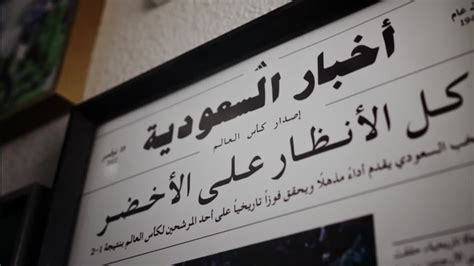 أخبار السعودية
إصدار كأس العالم
كل الأنظار على الأخضر
السعودي يقدم أداءً مذهلاً ويحقق فوزاً تاريخياً على أحد المرشحين لكأس العالم بنتيجة 1-2